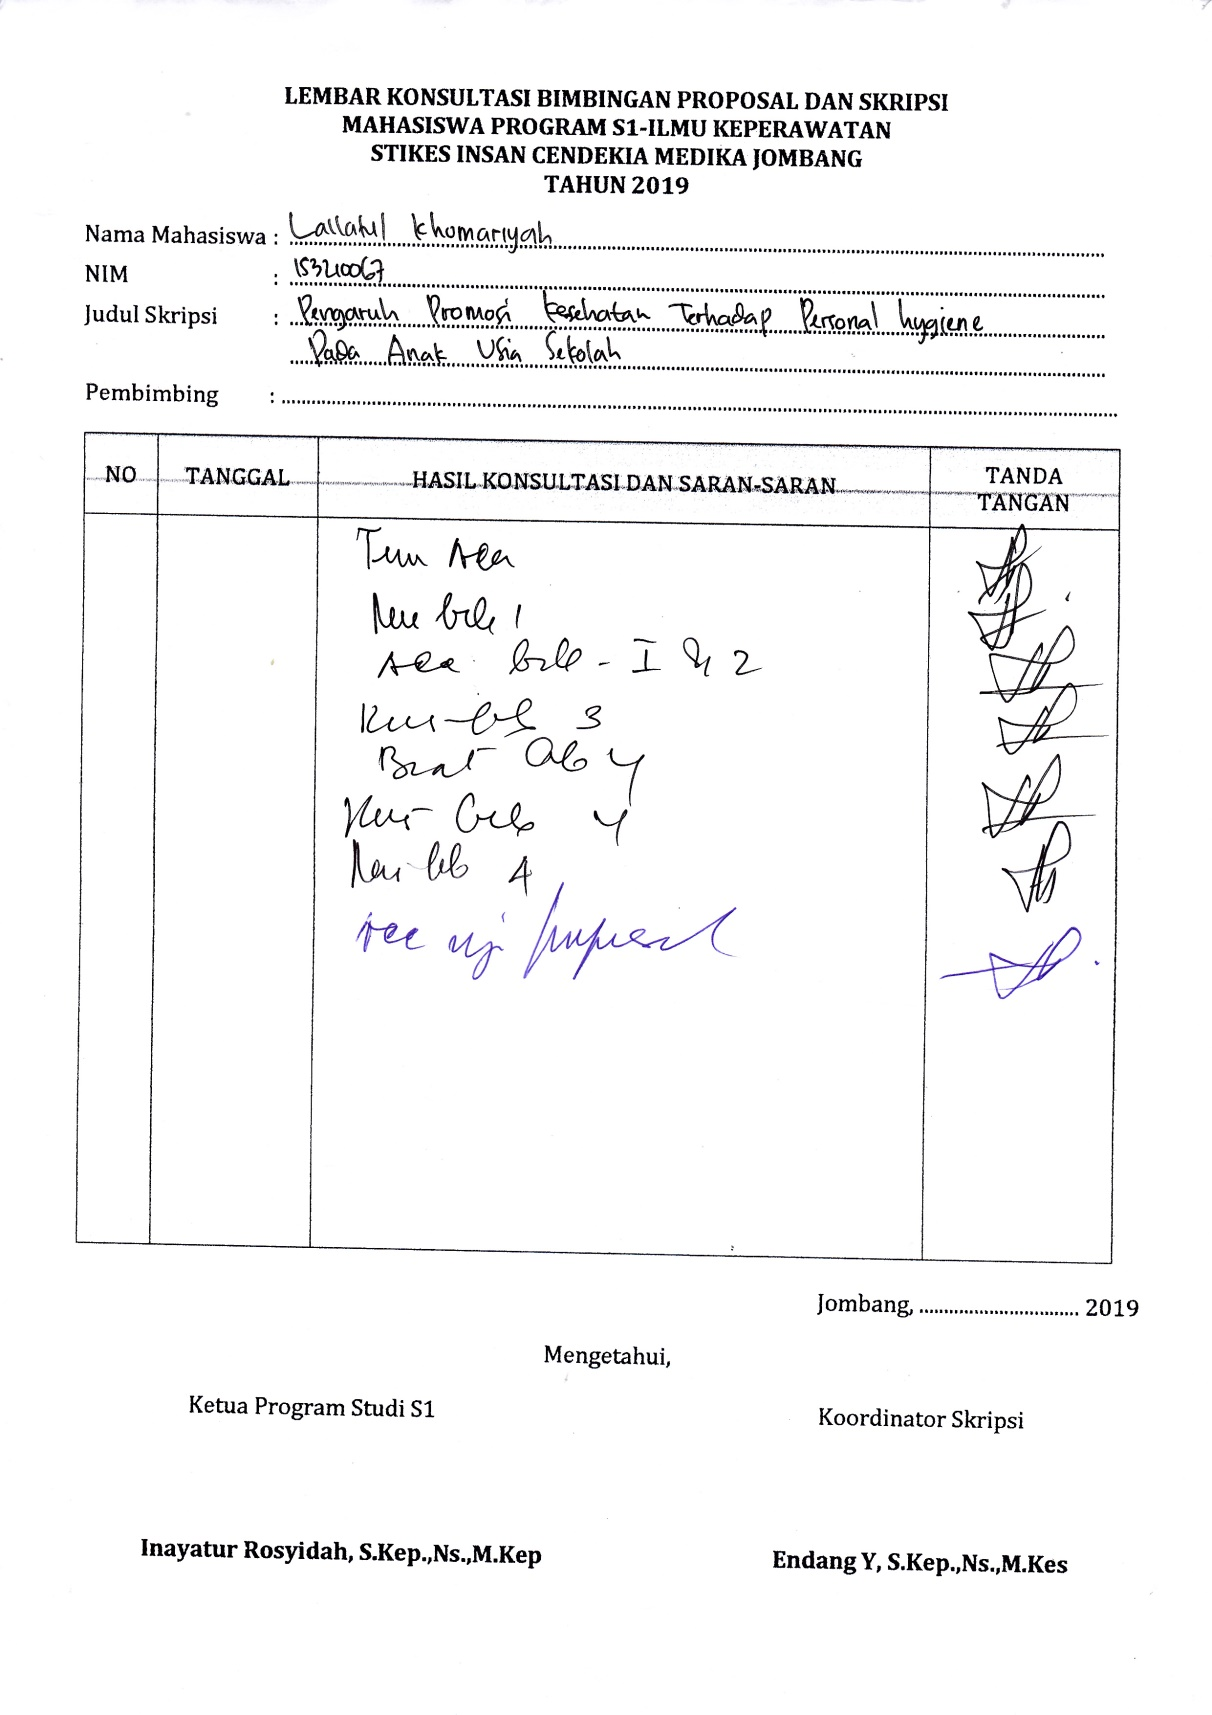 LEMBAR KONSULTASI BIMBINGAN PROPOSAL DAN SKRIPSI
MAHASISWA PROGRAM S1-ILMU KEPERAWATAN
STIKES INSAN CENDEKIA MEDIKA JOMBANG
TAHUN 2019
Nama Mahasiswa : Lailatul Khomariyah
NIM : 153210067
Judul Skripsi : Pengaruh Promosi kesehatan Terhadap Personal hygiene
Pada Anak Usia Sekolah
Pembimbing :
NO TANGGAL HASIL KONSULTASI DAN SARAN-SARAN TANDA TANGAN
Acc
1
Acc - I 2
3
4
Acc uji proposal
Jombang, 2019
Mengetahui,
Ketua Program Studi S1
Koordinator Skripsi
Inayatur Rosyidah, S.Kep.,Ns.,M.Kep
Endang Y, S.Kep.,Ns.,M.Kes